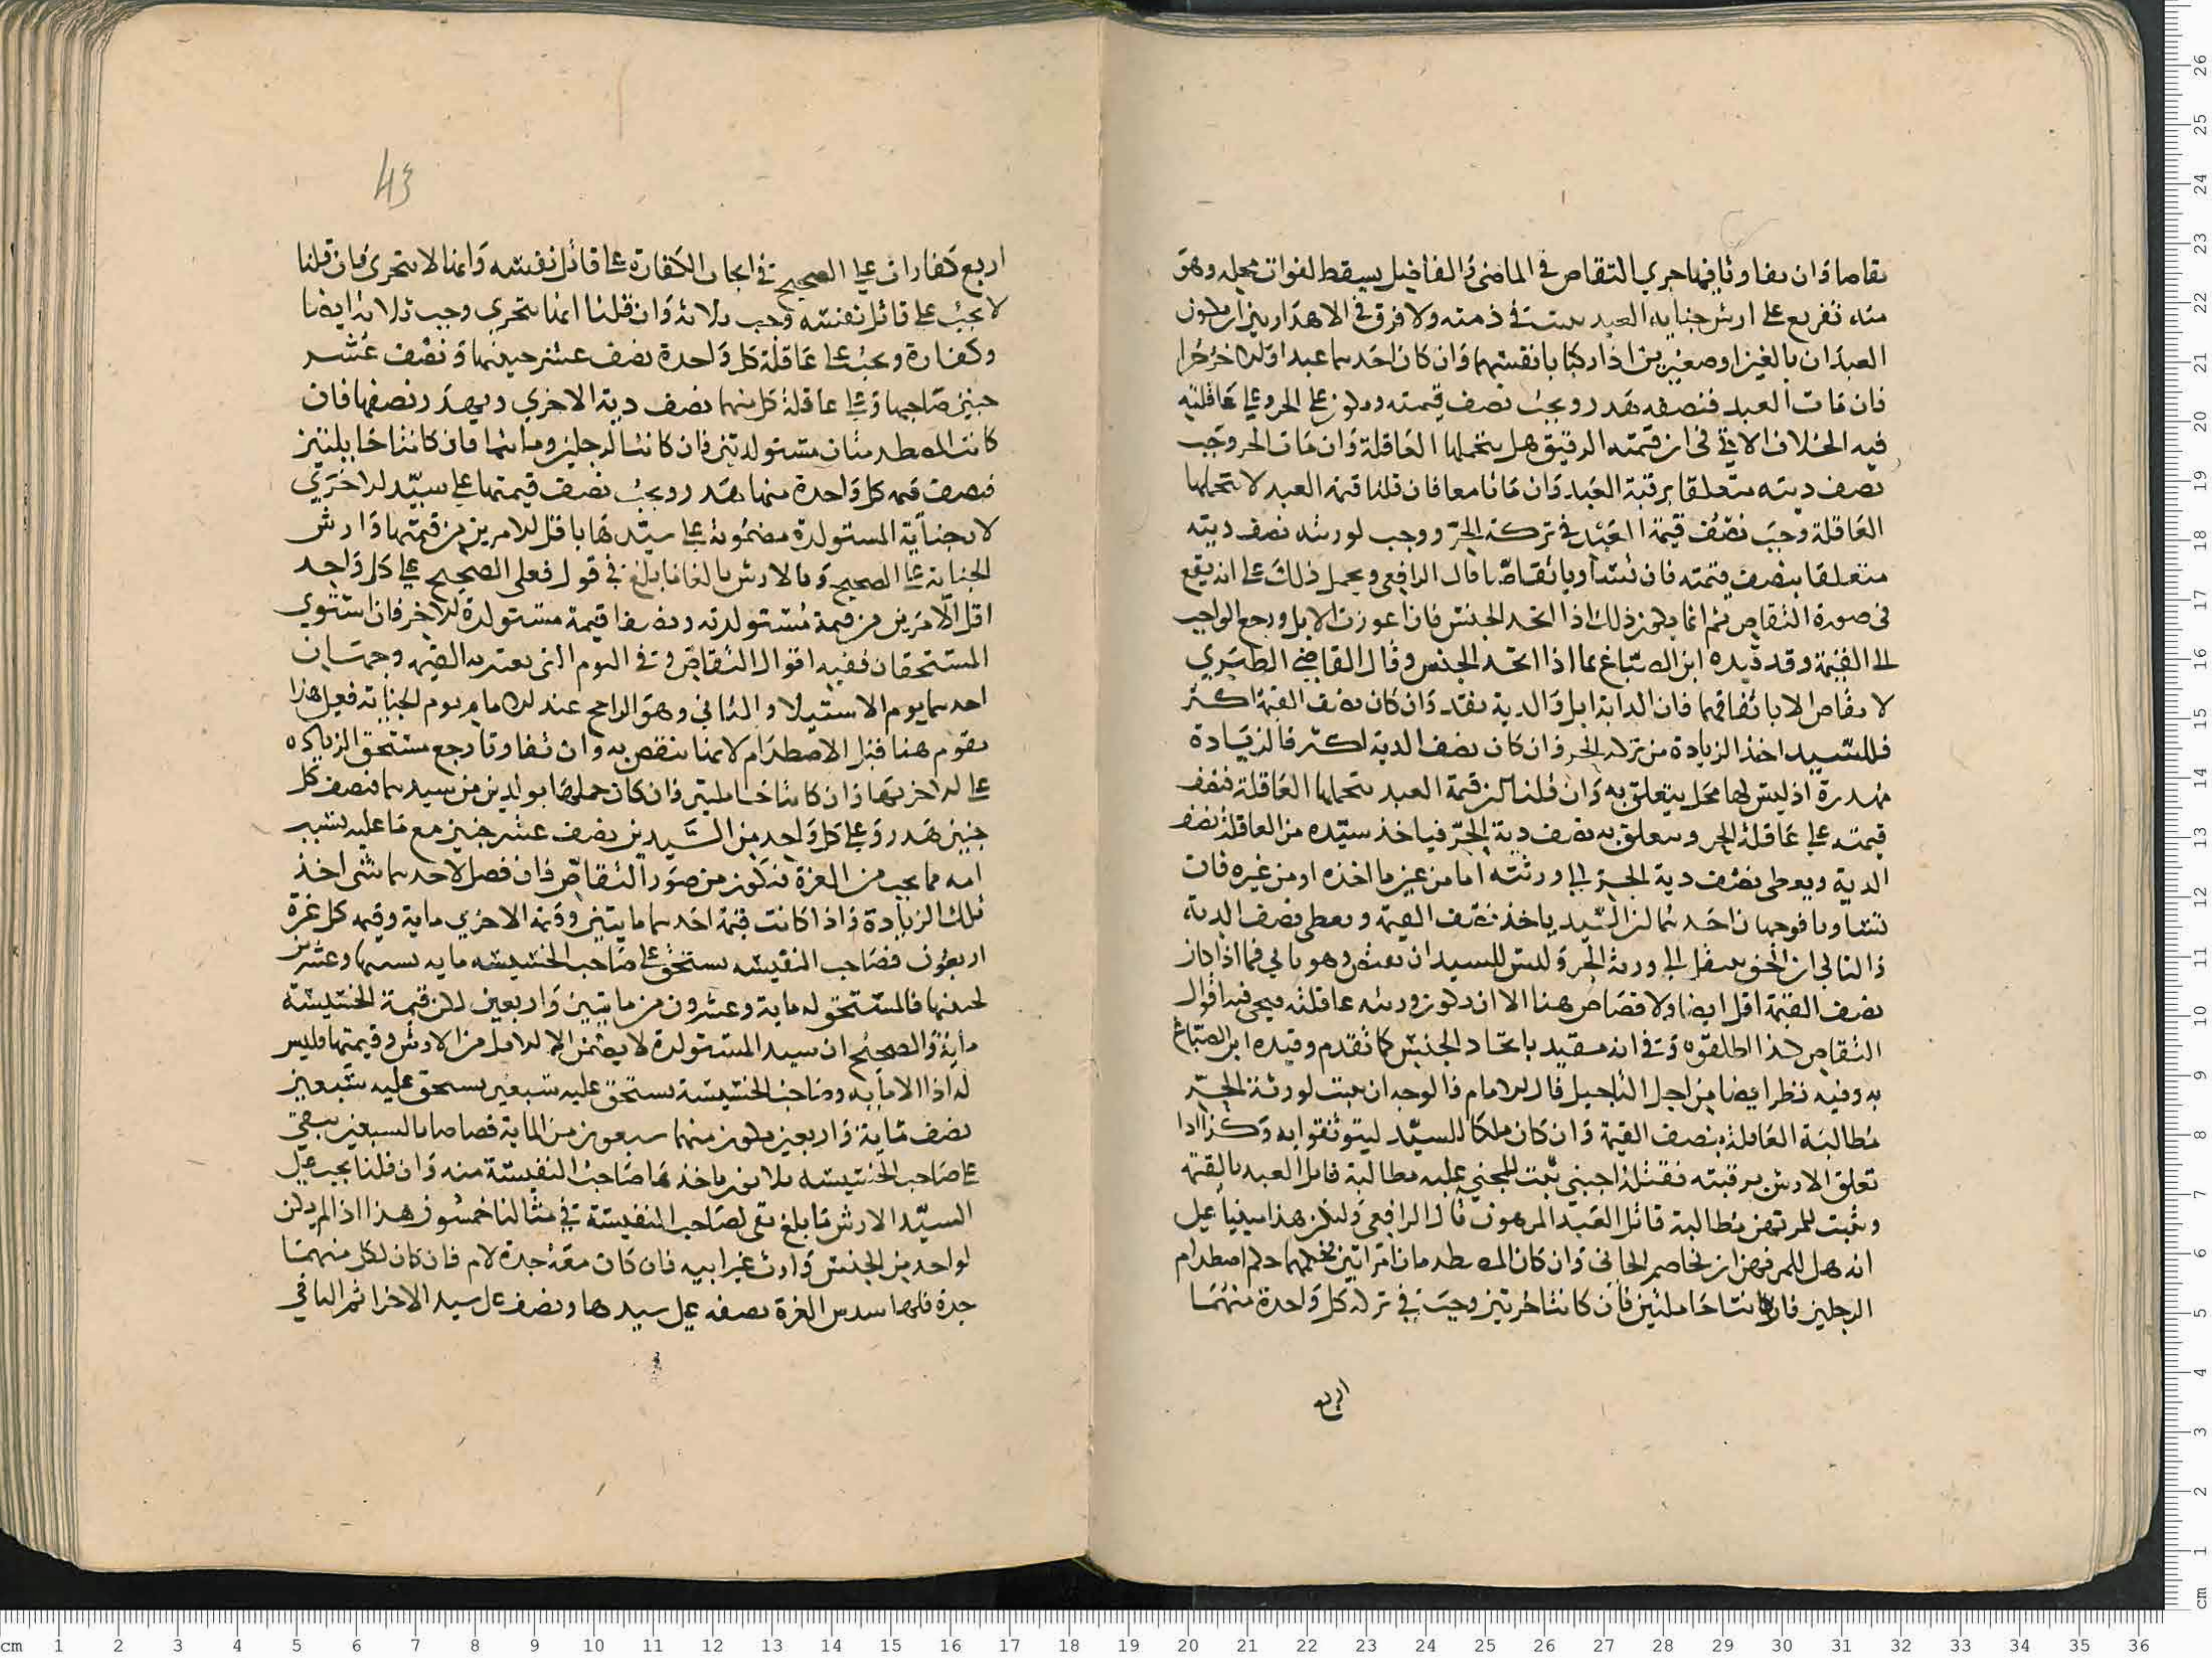 تقاصا وان تفاوتا فيها جرى التقاص في الماضي والفاضل يسقط لفوات محله وهو
منه تفريع على ارش جناية العبد يثبت في ذمته ولا فرق في الاهدار بين ان يكون
العبدان بالغين او صغيرين اذا ركبا بانفسهما وان كان احدهما عبدا والاخر حرا
فان مات العبد فنصفه هدر ويجب نصف قيمته ويكون على الحر وعلى عاقلته
فيه الخلاف الاتي في ان قيمته الرقيق هل يتحملها العاقلة وان مات الحر وجب
نصف ديته متعلقا برقبة العبد وان ماتا معا فان قلنا قيمة العبد لا تتحملها
العاقلة وجب نصف قيمة العبد في تركة الحر ووجب لورثته نصف ديته
متعلقا بنصف قيمته فان تساويا تقاصا قال الرافعي ويحمل ذلك على انه يقع
في صورة التقاص ثم انما يكون ذلك اذا اتحد الجنس فان اعوزت الابل ورجع الواجب
الى القيمة وقد قيده ابن الصباغ بما اذا اتحد الجنس وقال القاضي الطبري
لا تقاص الا باتفاقهما فان الدابة ابل والدية نقد وان كان نصف القيمة اكثر
فللسيد اخذ الزيادة من تركة الحر وان كان نصف الدية اكثر فالزيادة
مهدرة اذ ليس لها محل يتعلق به وان قلنا قيمة العبد تتحملها العاقلة فنصف
قيمته على عاقلة الحر ويتعلق به نصف دية الحر فياخذ سيده من العاقلة نصف
الدية ويعطي نصف دية الحر الى ورثته اما من عين ما اخذه او من غيره فان
تساويا فوجهان احدهما ان السيد ياخذ نصف القيمة ويعطي نصف الدية
والثاني ان الحق ينتقل الى ورثة الحر وليس للسيد ان وهو ياتي فيما اذا كان
نصف القيمة اقل ايضا ولا قصاص هنا الا ان يكون ورثته عاقلته فيجي فيه اقوال
التقاص كذا اطلقوه وفي انه مقيد باتحاد الجنس كما تقدم وقيده ابن الصباغ
به وفيه نظر ايضا من اجل التاجيل قال الامام فالوجه ان يثبت لورثة الحر
مطالبة العاقلة بنصف القيمة وان كان ملكا للسيد ليتوثقوا به وكذا اذا
تعلق الارش برقبته فقتله اجنبي ثبت للمجني عليه مطالبة قاتل العبد بالقيمة
ويثبت للمرتهن مطالبة قاتل العبد المرهون قال الرافعي وليكن هذا مبنيا على
انه هل للمرتهن ان يخاصم الجاني وان كان المصطدمان امراتين فحكمهما حكم اصطدام
الرجلين فان كانتا حاملتين فان كانتا حرتين وجبت في تركة كل واحدة منهما
اربع
43
اربع كفارات على الصحيح في ايجاب الكفارة على قاتل نفسه وانها لا تتجزى فان قلنا
لا يجب على قاتل نفسه وجب ثلاثة وان قلنا انها تتجزى وجب ثلاثة ايضا
وكفارة ويجب على عاقلة كل واحدة نصف عشر جنينها ونصف عشر
جنين صاحبها وعلى عاقلة كل منهما نصف دية الاخرى ويهدر نصفها فان
كانت المصطدمتان مستولدتين فان كانتا لرجلين وماتتا فان كانتا حايلتين
فنصف قيمة كل واحدة منها هدر ويجب نصف قيمتها على سيد الاخرى
لان جناية المستولدة مضمونة على سيدها باقل الامرين من قيمتها وارش
الجناية على الصحيح وبالارش بالغا ما بلغ في قول فعلى الصحيح على كل واحد
اقل الامرين من قيمة مستولدته ونصف قيمة مستولدة الاخر فان استوى
المستحقان ففيه اقوال التقاص وفي اليوم الذي يعتبر به القيمة وجهان
احدهما يوم الاستيلاد والثاني وهو الراجح عند الامام يوم الجناية فعلى هذا
تقوم هنا قبل الاصطدام لانها تنقص به وان تفاوتا رجع مستحق الزيادة
على الاخر بها وان كانتا حاملتين فان كان حملهما بولدين من سيديهما فنصف كل
جنين هدر وعلى كل واحد من السيدين نصف عشر جنين مع ما عليه بسبب
امه مما يجب من الغرة فتكون من صور التقاص فان فضل لاحدهما شي اخذ
تلك الزيادة واذا كانت قيمة احدهما مايتين وقيمة الاخرى ماية وقيمة كل غرة
اربعون فصاحب النفيسة يستحق على صاحب الخسيسة ماية بسببها وعشرين
لجنينها فالمستحق له ماية وعشرون من مايتين واربعين لكن قيمة الخسيسة
ماية والصحيح ان سيد المستولدة لا يضمن الا الاقل من الارش وقيمتها فليس
له اذا الا ماية وصاحب الخسيسة يستحق عليه سبعين يستحق عليه سبعين
نصف ماية واربعين فيكون منهما سبعون من الماية قصاصا بالسبعين يبقى
على صاحب الخسيسة ثلاثون ياخذها صاحب النفيسة منه وان قلنا يجب على
السيد الارش ما بلغ بقي لصاحب النفيسة في مثالنا خمسون هذا اذا لم يكن
لواحد من الجنين وارث غير ابيه فان كان معه جدة لام فان كان لكل منهما
جدة فلها سدس الغرة نصفه على سيدها ونصف على سيد الاخرى ثم الباقي